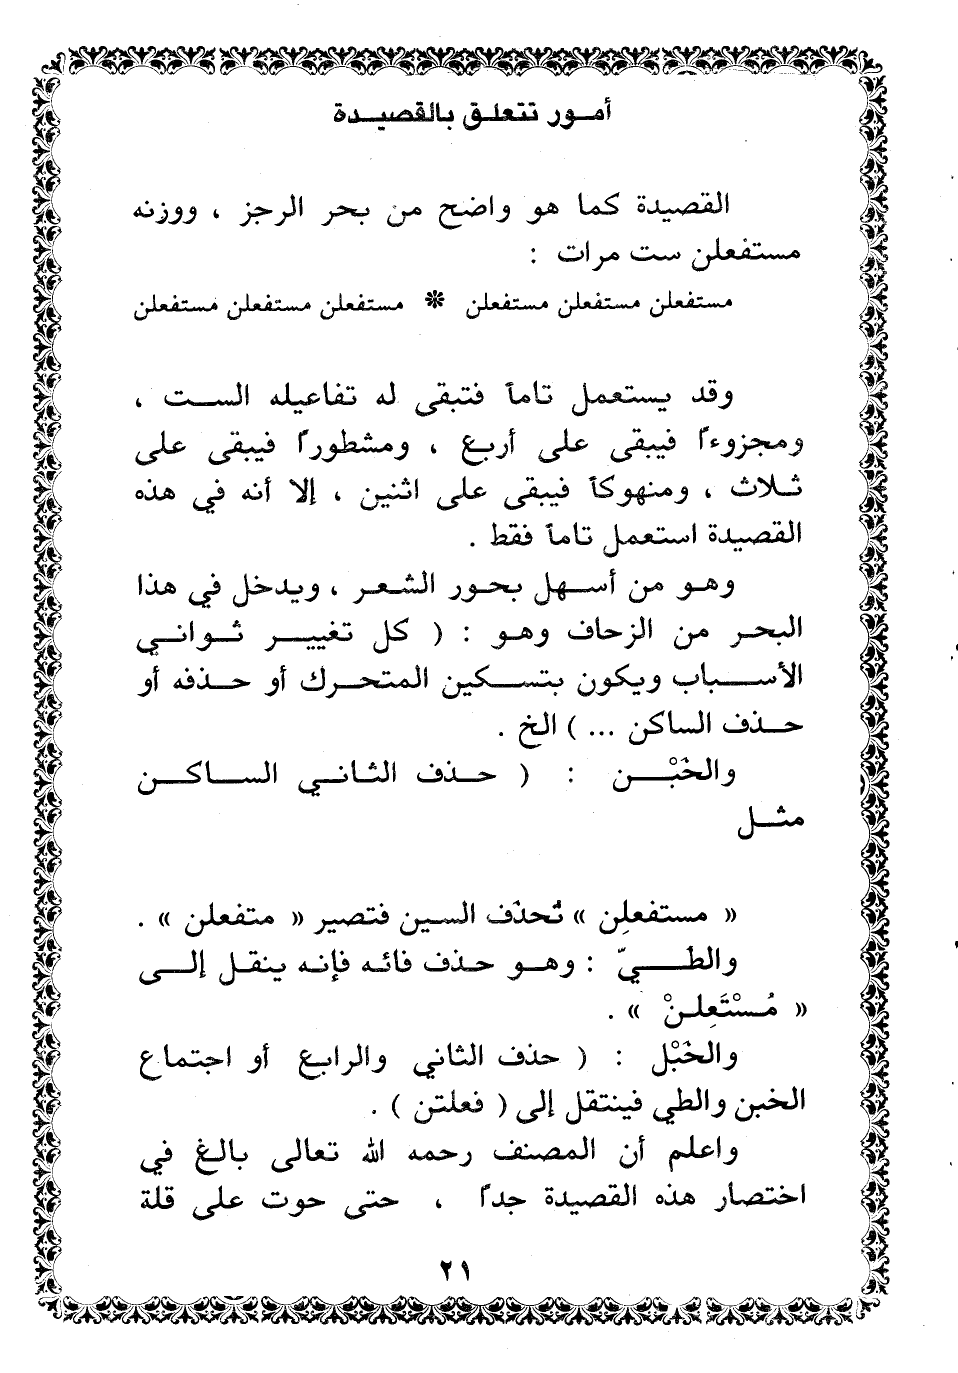 أمور تتعلق بالقصيدة
القصيدة كما هو واضح من بحر الرجز ، ووزنه
مستفعلن ست مرات :
مستفعلن مستفعلن مستفعلن * مستفعلن مستفعلن مستفعلن
وقد يستعمل تاماً فتبقى له تفاعيله الست ،
ومجزوءاً فيبقى على أربع ، ومشطوراً فيبقى على
ثلاث ، ومنهوكاً فيبقى على اثنين ، إلا أنه في هذه
القصيدة استعمل تاماً فقط .
وهو من أسهل بحور الشعر ، ويدخل في هذا
البحر من الزحاف وهو : ( كل تغيير ثواني
الأسباب ويكون بتسكين المتحرك أو حذفه أو
حذف الساكن ... ) الخ .
والخَبْن : ( حذف الثاني الساكن
مثل
« مستفعلِن » تُحذَف السين فتصير « متفعلن » .
والطيّ : وهو حذف فائه فإنه ينقل إلى
« مُسْتَعِلنْ » .
والخَبْل : ( حذف الثاني والرابع أو اجتماع
الخبن والطي فينتقل إلى ( فعلتن ) .
واعلم أن المصنف رحمه الله تعالى بالغ في
اختصار هذه القصيدة جداً ، حتى حوت على قلة
٢١